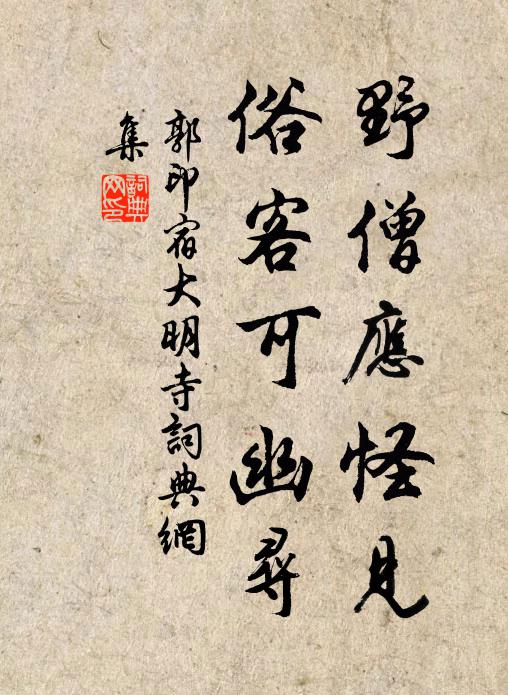 野僧應怪見
俗客可幽尋
郭印宿大明寺詞典網
集
詞典
网印